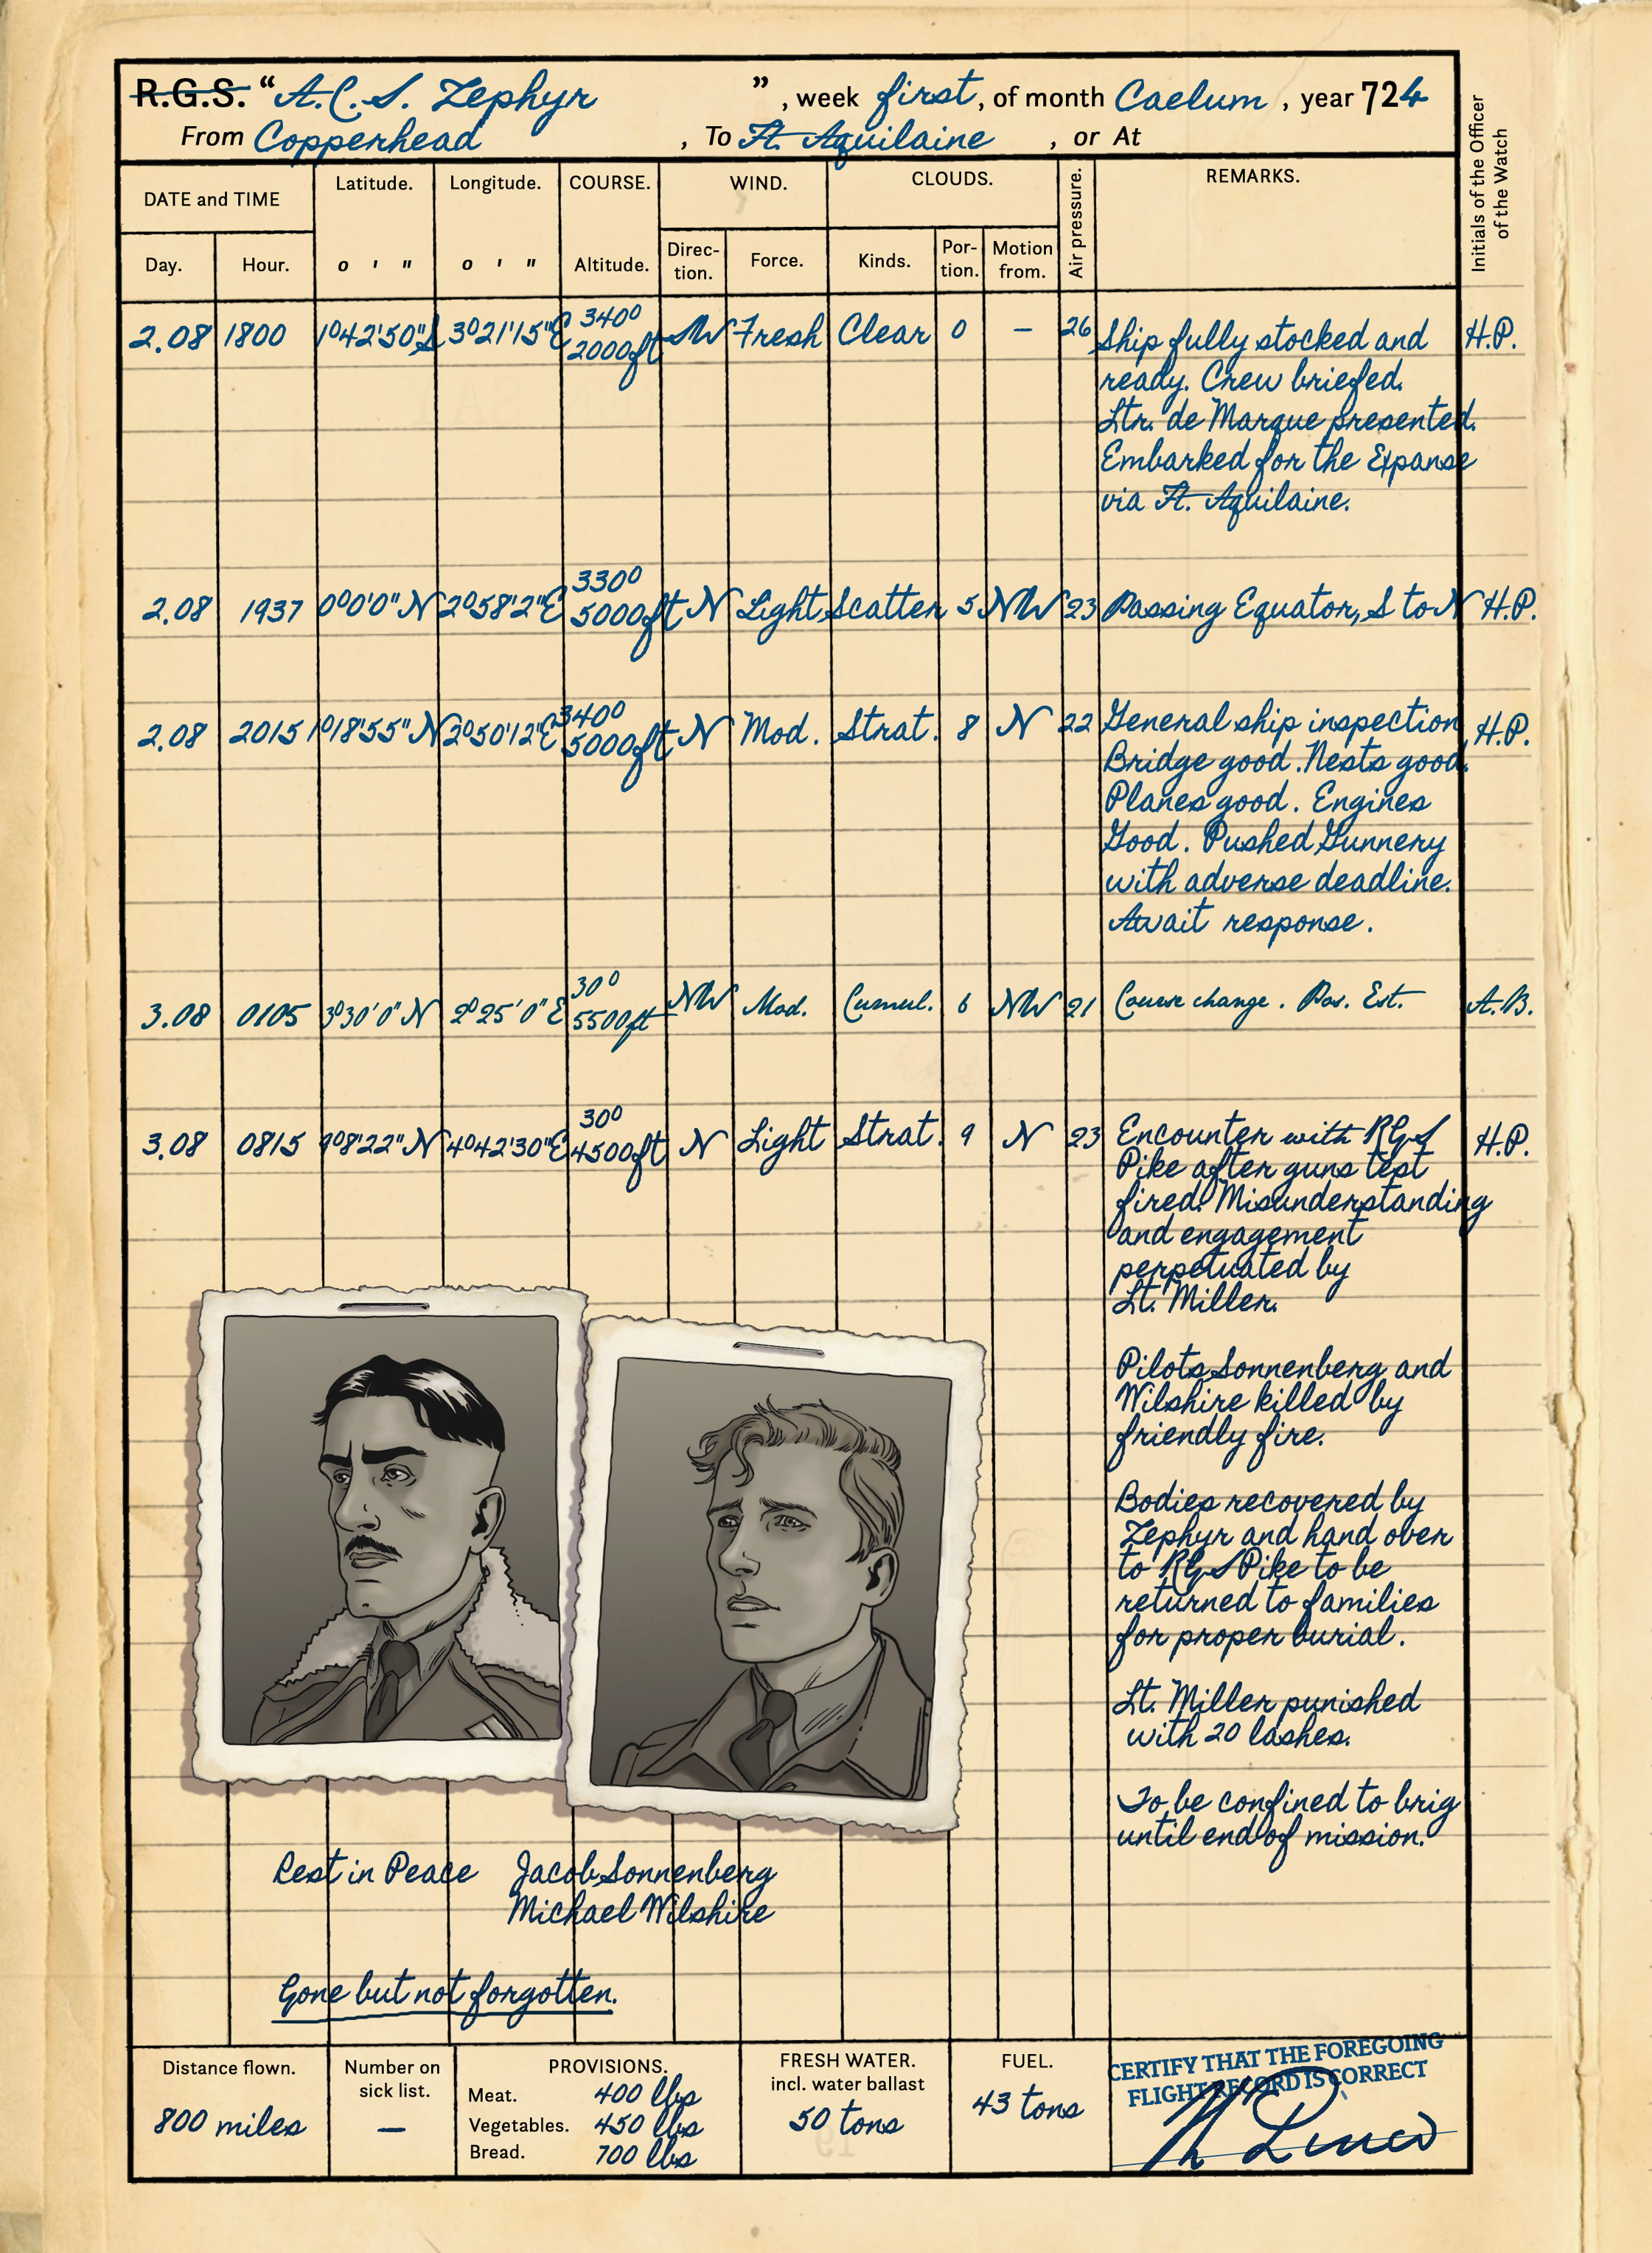 R.G.S. “A.C.S. Zephyr ” , week first , of month Caelum , year 724
From Copperhead , To Ft. Aquilaine , or At
Initials of the Officer
of the Watch
DATE and TIME Latitude. Longitude. COURSE. WIND. CLOUDS. Air pressure. REMARKS.
Day. Hour. o ' " o ' " Altitude. Direc-
tion. Force. Kinds. Por-
tion. Motion
from.
2.08 1800 1°42'50"S 3°21'15"E 340°
2000ft SW Fresh Clear 0 – 26 Ship fully stocked and H.P.
ready. Crew briefed.
Ltr. de Marque presented.
Embarked for the Expanse
via Ft. Aquilaine.
2.08 1937 0°0'0"N 2°58'2"E 330°
5000ft N Light Scatter 5 NW 23 Passing Equator, S to N H.P.
2.08 2015 1°18'55"N 2°50'12"E 340°
5000ft N Mod. Strat. 8 N 22 General ship inspection H.P.
Bridge good. Nests good.
Planes good. Engines
Good. Pushed Gunnery
with adverse deadline.
Await response.
3.08 0105 3°30'0"N 2°25'0"E 30°
5500ft NW Mod. Cumul. 6 NW 21 Course change. Pos. Est. A.B.
3.08 0815 9°8'22"N 4°42'30"E 30°
4500ft N Light Strat. 9 N 23 Encounter with RGS H.P.
Pike after guns test
fired. Misunderstanding
and engagement
perpetuated by
Lt. Miller.
Pilots Sonnenberg and
Wilshire killed by
friendly fire.
Bodies recovered by
Zephyr and hand over
to RGS Pike to be
returned to families
for proper burial.
Lt. Miller punished
with 20 lashes.
To be confined to brig
until end of mission.
Rest in Peace Jacob Sonnenberg
Michael Wilshire
Gone but not forgotten.
Distance flown.
800 miles
Number on
sick list.
–
PROVISIONS.
Meat. 400 lbs
Vegetables. 450 lbs
Bread. 700 lbs
FRESH WATER.
incl. water ballast
50 tons
FUEL.
43 tons
CERTIFY THAT THE FOREGOING
FLIGHT RECORD IS CORRECT